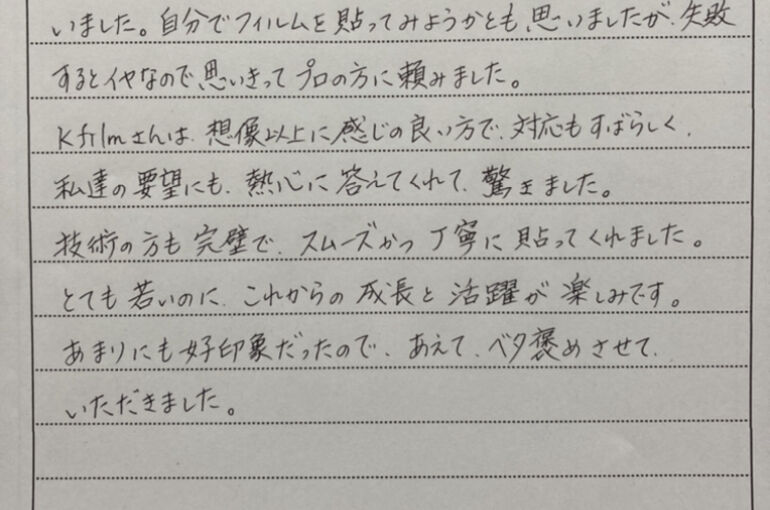 いました。自分でフィルムを貼ってみようかとも思いましたが、失敗
するとイヤなので思いきってプロの方に頼みました。
Kfilmさんは、想像以上に感じの良い方で、対応もすばらしく、
私達の要望にも、熱心に答えてくれて、驚きました。
技術の方も完璧で、スムーズかつ丁寧に貼ってくれました。
とても若いのに、これからの成長と活躍が楽しみです。
あまりにも好印象だったので、あえて、ベタ褒めさせて、
いただきました。